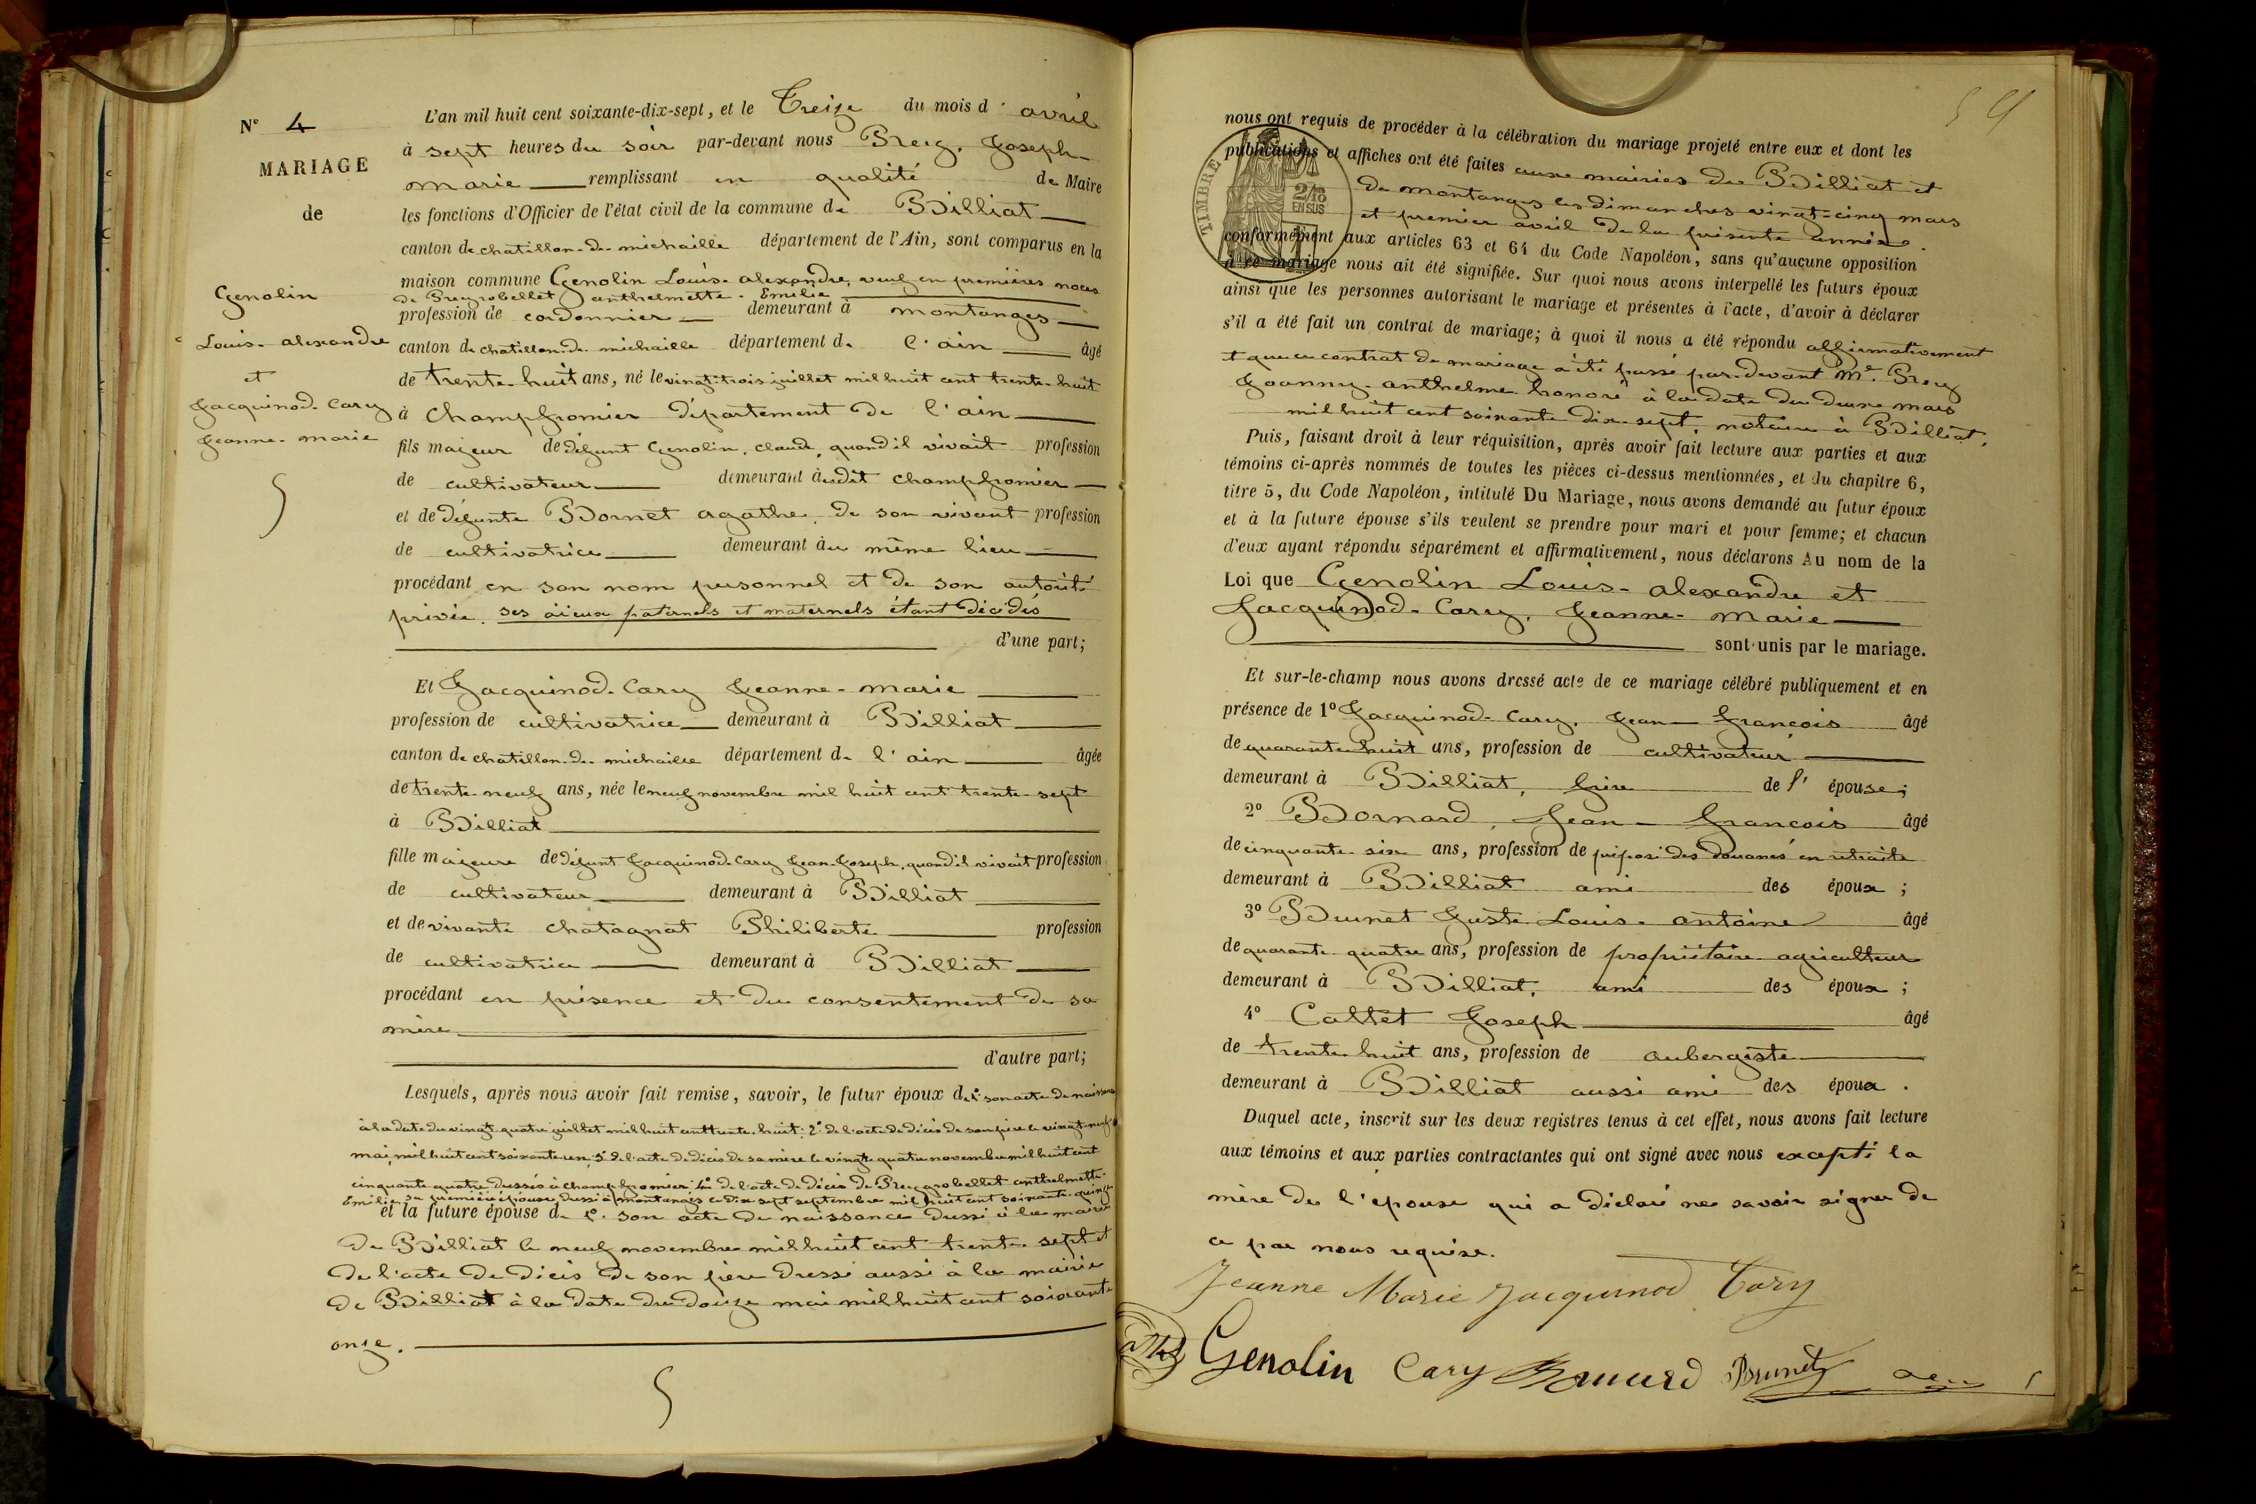 N° 4
MARIAGE
de
Genolin
Louis-alexandre
et
Jacquinod-Cary
Jeanne-marie
L'an mil huit cent soixante-dix-sept, et le Treize du mois d'avril
à sept heures du soir par-devant nous Brey, Joseph-
marie remplissant en qualité de Maire
les fonctions d'Officier de l'état civil de la commune de Billiat
canton de chatillon-de-michaille département de l'Ain, sont comparus en la
maison commune Genolin Louis-alexandre, veuf en premières noces
de anthelmette-Emilie
profession de cordonnier demeurant à montanges
canton de chatillon-de-michaille département de l'ain âgé
de trente-huit ans, né le vingt-trois juillet mil huit cent trente-huit
à Champfromier département de l'ain
fils majeur de défunt Genolin, claude, quand il vivait profession
de cultivateur demeurant audit champfromier
et de défunte Bornet agathe, de son vivant profession
de cultivatrice demeurant au même lieu
procédant en son nom personnel et de son autorité
privée. ses aïeux paternels et maternels étant décédés
d'une part;
Et Jacquinod-Cary Jeanne-marie
profession de cultivatrice demeurant à Billiat
canton de chatillon-de-michaille département de l'ain âgée
de trente-neuf ans, née le neuf novembre mil huit cent trente-sept
à Billiat
fille majeure de défunt Jacquinod-Cary Jean-Joseph, quand il vivait profession
de cultivateur demeurant à Billiat
et de vivante chatagnat Philiberte profession
de cultivatrice demeurant à Billiat
procédant en présence et du consentement de sa
mère
d'autre part;
Lesquels, après nous avoir fait remise, savoir, le futur époux de 1° son acte de naissance
à la date du vingt-quatre juillet mil huit cent trente-huit; 2° de l'acte de décès de son père le vingt-neuf
mai, mil huit cent soixante un, 3° de l'acte de décès de sa mère le vingt-quatre novembre mil huit cent
cinquante quatre dressés à champfromier; 4° de l'acte de décès de anthelmette-
Emilie sa première épouse, dressé à montanges le dix sept septembre mil huit cent soixante-quinze
et la future épouse de 1° son acte de naissance dressé à la mairie
de Billiat le neuf novembre mil huit cent trente-sept et
de l'acte de décès de son père dressé aussi à la mairie
de Billiat à la date du douze mai mil huit cent soixante
onze.
nous ont requis de procéder à la célébration du mariage projeté entre eux et dont les
publications et affiches ont été faites aux mairies de Billiat et
de montanges les dimanches vingt-cinq mars
et premier avril de la présente année.
conformément aux articles 63 et 64 du Code Napoléon, sans qu'aucune opposition
à ce mariage nous ait été signifiée. Sur quoi nous avons interpellé les futurs époux
ainsi que les personnes autorisant le mariage et présentes à l'acte, d'avoir à déclarer
s'il a été fait un contrat de mariage; à quoi il nous a été répondu affirmativement
et que ce contrat de mariage a été passé par-devant Me Brey
Joanny-anthelme honoré à la date du mars
mil huit cent soixante dix-sept, notaire à Billiat.
TIMBRE
2/10
EN SUS
Puis, faisant droit à leur réquisition, après avoir fait lecture aux parties et aux
témoins ci-après nommés de toutes les pièces ci-dessus mentionnées, et du chapitre 6,
titre 5, du Code Napoléon, intitulé Du Mariage, nous avons demandé au futur époux
et à la future épouse s'ils veulent se prendre pour mari et pour femme; et chacun
d'eux ayant répondu séparément et affirmativement, nous déclarons Au nom de la
Loi que Genolin Louis-alexandre et
Jacquinod-Cary, Jeanne-Marie
sont unis par le mariage.
Et sur-le-champ nous avons dressé acte de ce mariage célébré publiquement et en
présence de 1° Jacquinod-Cary, Jean-françois âgé
de quarante huit ans, profession de cultivateur
demeurant à Billiat, frère de l'épouse;
2° Bornard, Jean-françois âgé
de cinquante-six ans, profession de préposé des douanes en retraite
demeurant à Billiat ami des époux;
3° Brunet Juste Louis-antoine âgé
de quarante-quatre ans, profession de propriétaire-agriculteur
demeurant à Billiat, ami des époux;
4° Cattet Joseph âgé
de trente-huit ans, profession de aubergiste
demeurant à Billiat aussi ami des époux.
Duquel acte, inscrit sur les deux registres tenus à cet effet, nous avons fait lecture
aux témoins et aux parties contractantes qui ont signé avec nous excepté la
mère de l'épouse qui a déclaré ne savoir signer de
ce par nous requise.
Jeanne Marie Jacquinod Cary
Genolin Cary Bornard Brunet